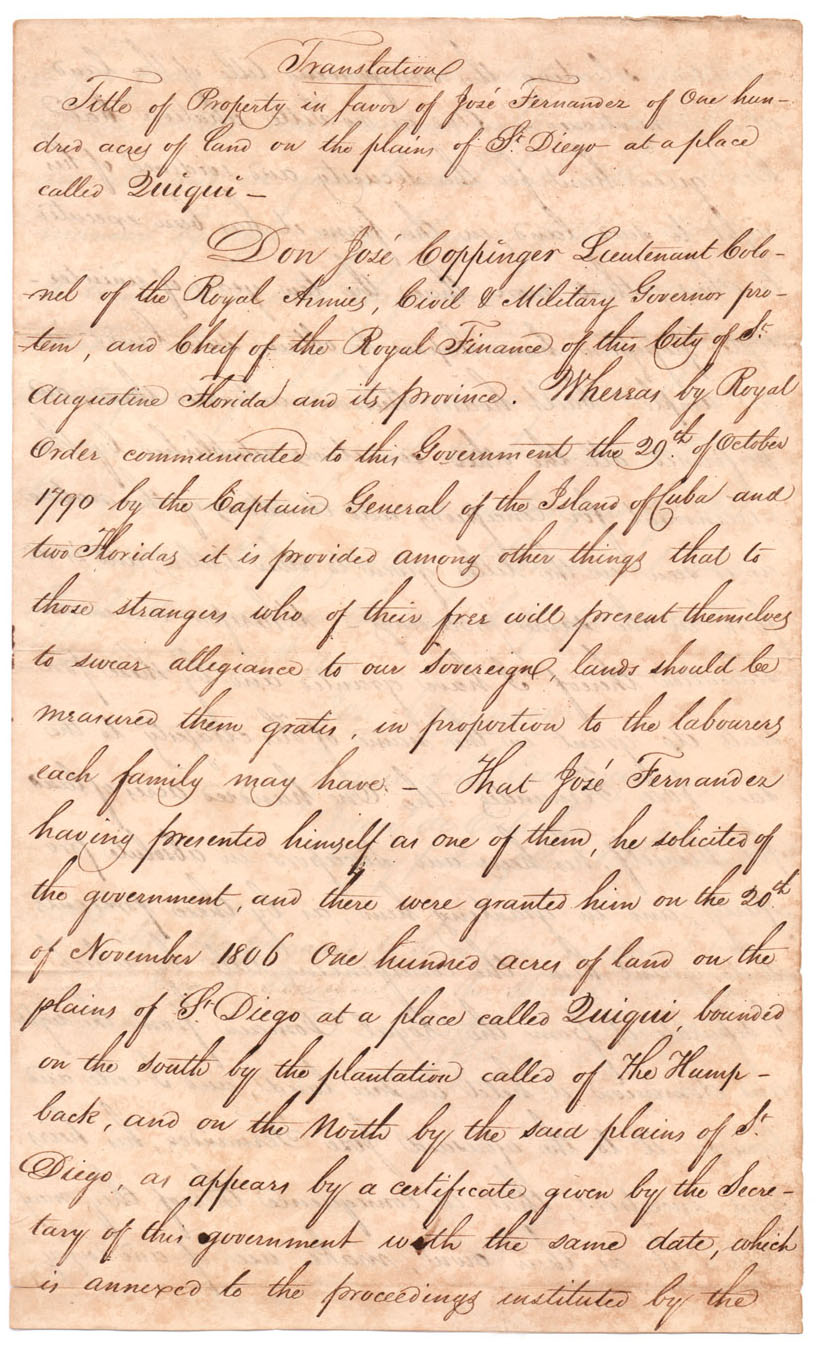 Translation
Title of Property in favor of José Fernandez of One hun-
dred acres of land on the plains of St. Diego at a place
called Quiqui -
Don José Coppinger Lieutenant Colo-
-nel of the Royal Armies, Civil & Military Governor pro-
-tem, and Cheif of the Royal Finance of this City of St.
Augustine Florida and its province. Whereas by Royal
Order communicated to this Government the 29th of October
1790 by the Captain General of the Island of Cuba and
two Floridas it is provided among other things that to
those strangers who of their free will present themselves
to swear allegiance to our Sovereign, lands should be
measured them gratis, in proportion to the labourers
each family may have. - That José Fernandez
having presented himself as one of them, he solicited of
the government, and there were granted him on the 20th
of November 1806 One hundred acres of land on the
plains of St. Diego at a place called Quiqui, bounded
on the south by the plantation called of The Hump-
back, and on the North by the said plains of St.
Diego, as appears by a certificate given by the Secre-
tary of this government with the same date, which
is annexed to the proceedings instituted by the